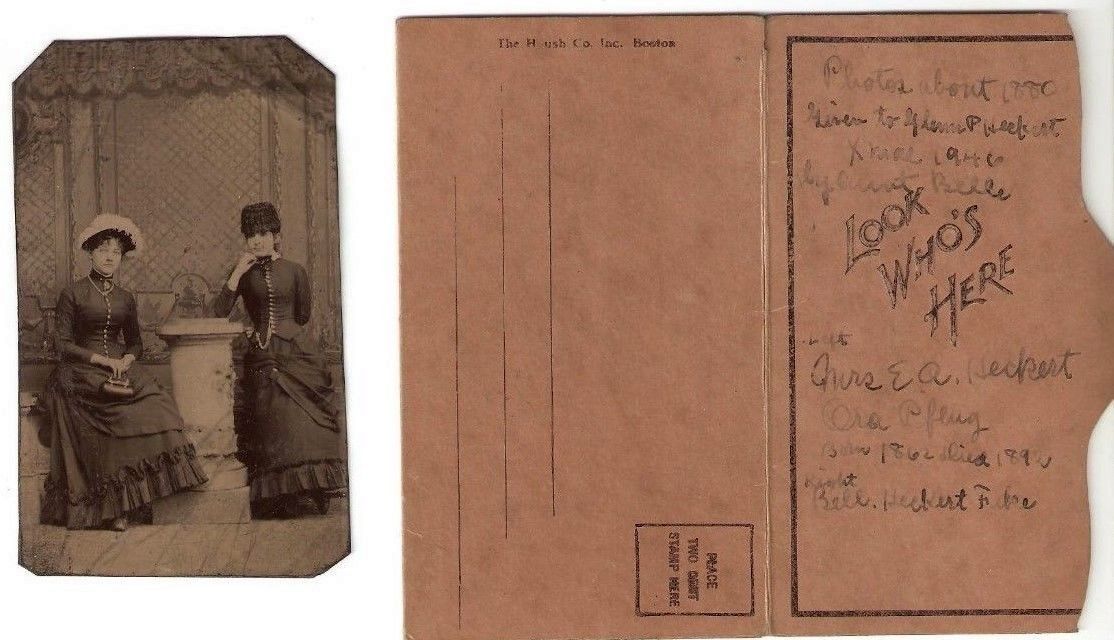 The H ush Co. Inc. Boston
PLACE
TWO CENT
STAMP HERE
Photos about 1880
Given to Glenn P Heckert
Xmas 1946
by Aunt Belle
LOOK
WHO'S
HERE
Mrs E. A. Heckert
Ora Pflug
Born 1862 died 1892
Right
Bell. Heckert